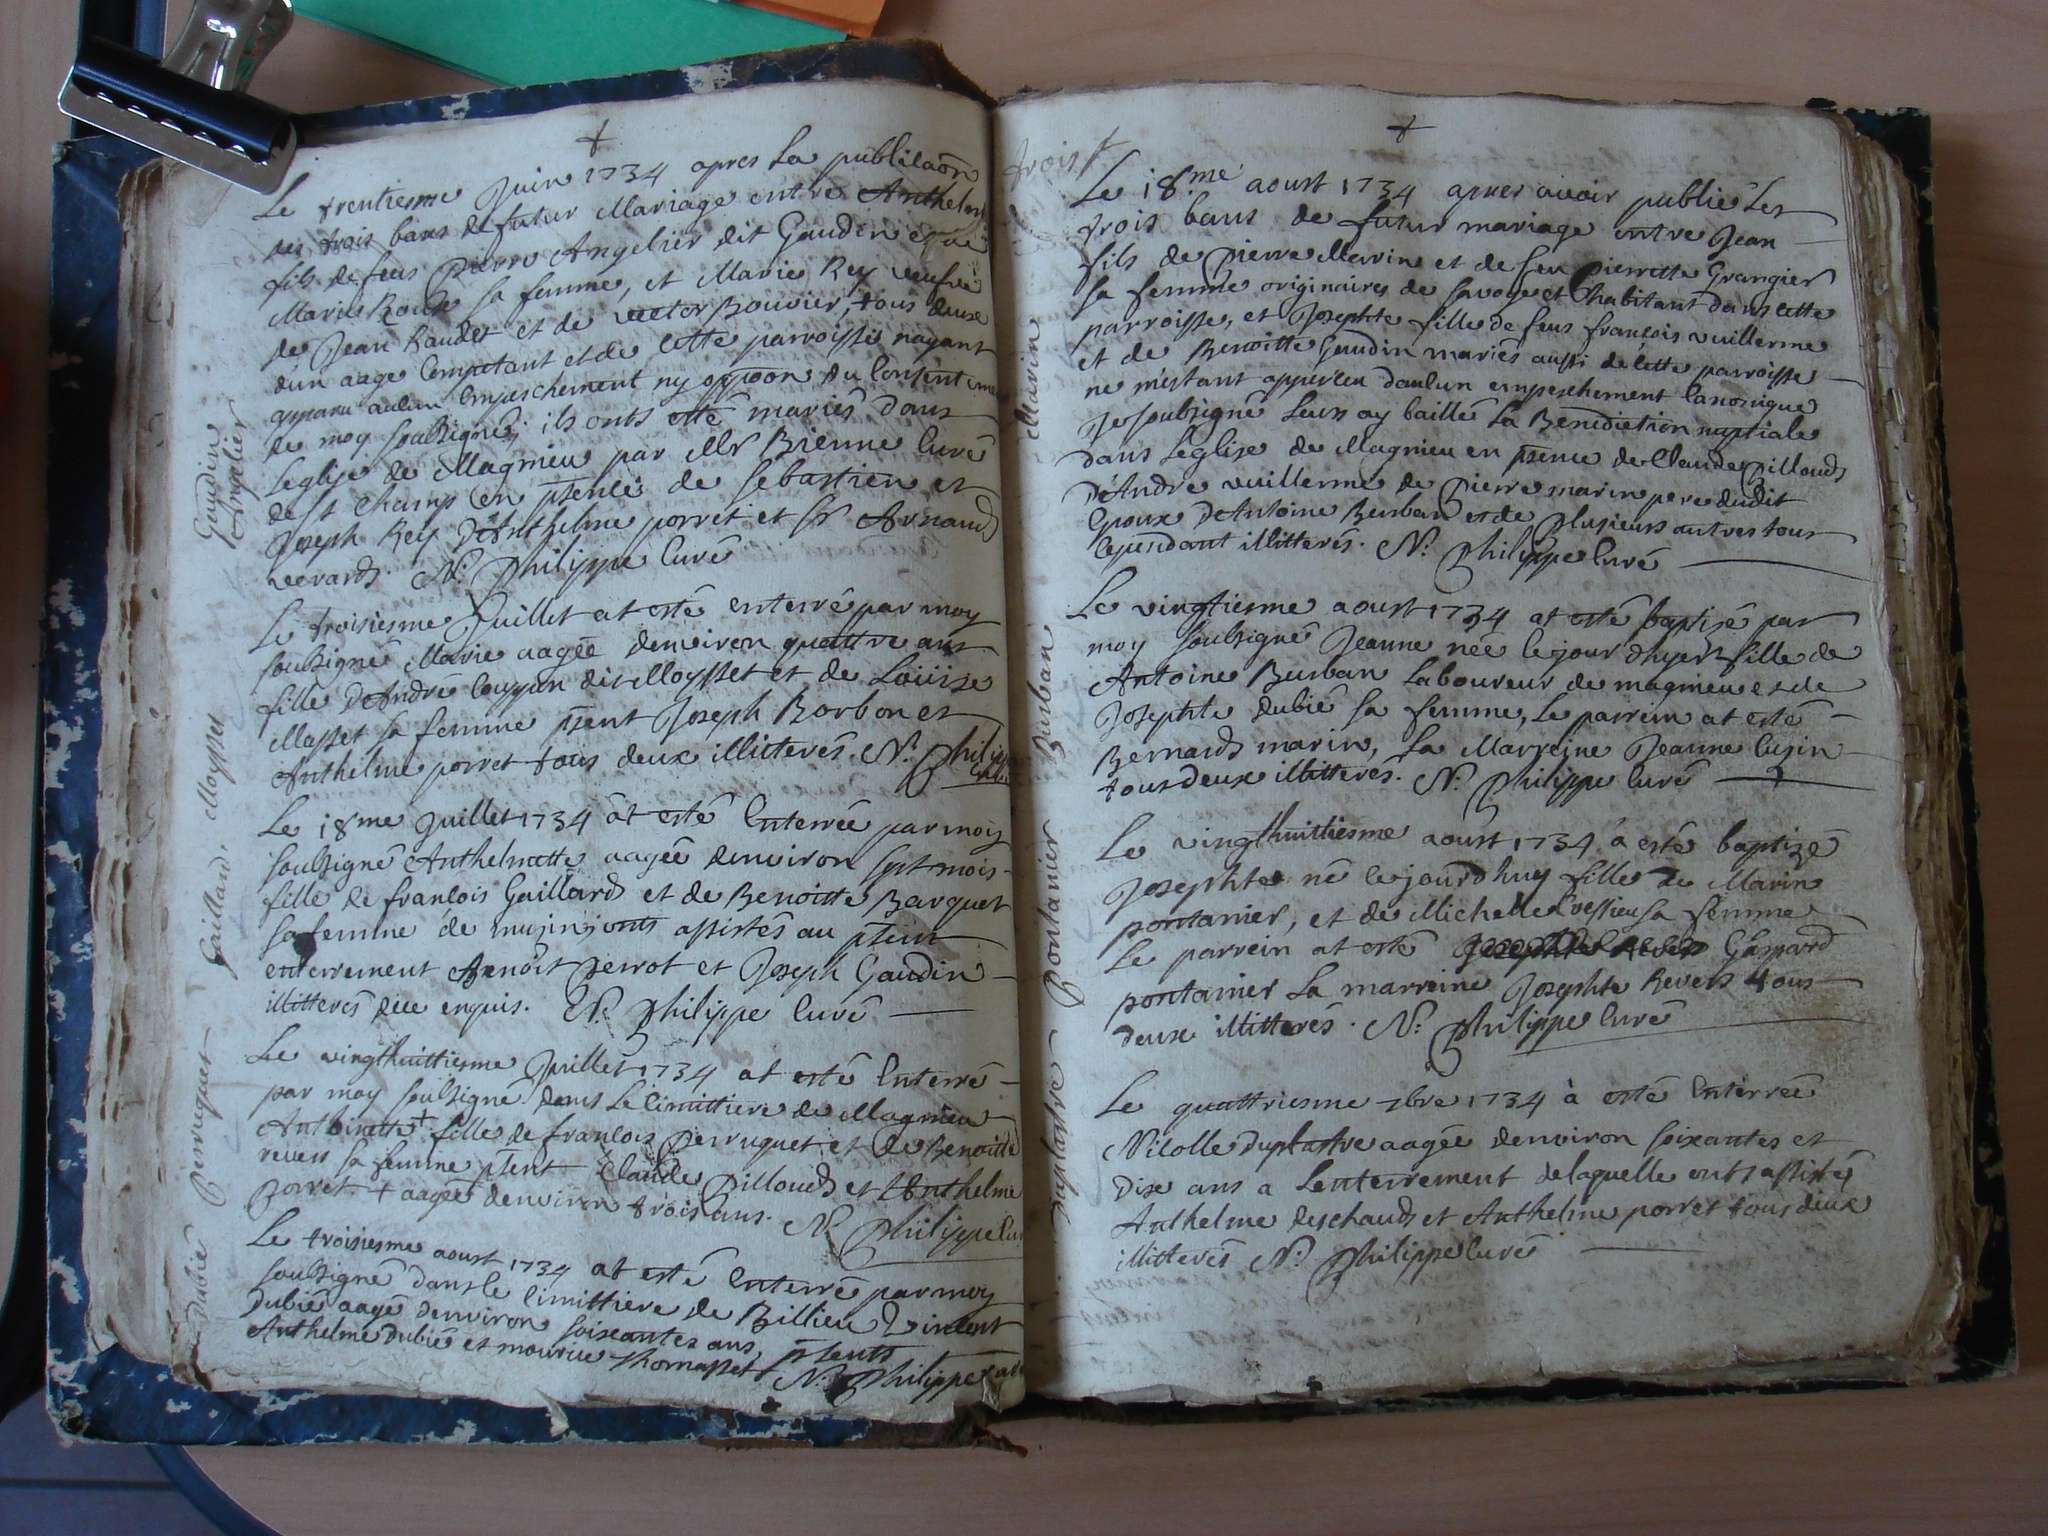 Le trentiesme Juin 1734 apres La publicaõn
des trois bans de futur Mariage entre Anthelme
fils de feus Pierre Angelier dit Gaudin et de
Marie Roux sa femme, et Marie Rey veufve
de Jean Baudet et de victor Bouvier, tous deux
d'un aage Competant et de cette parroisse nayant
apparu aucun Empeschement ny oppoõn du Consenteme
de moy soubsigné; ils onts esté mariés dans
Leglise de Magnieu par Mr Bienne Curé
de St Champ en pñce de Sebastien et
Joseph Rey D'Anthelme porret et Sr Arnaud
verard. N: Philippe Curé
Le troisiesme Juillet at esté enterré par moy
soubsigné Marie aagée denviron quattre ans
fille D'André dit Moysset et de Loüise
Masset sa femme pñt Joseph Borbon et
Anthelme porret tous deux illitterés. N: Philippe
Curé
Le 18me Juillet 1734 at esté Enterrée par moy
soubsigné Anthelmette aagée denviron sept mois
fille de françois Gaillard et de Benoitte Barquet
sa femme de musin; onts assistés au pñt
enterrement Benoît Perrot et Joseph Gaudin
illitterés de ce enquis. N: Philippe Curé
Le vingthuittiesme Juillet 1734 at esté Enterré
par moy soubsigné dans Le Cimittiere de Magnieu
Anthoinette + fille de françois Perruquet et de Benoitte
revers sa femme pñt Claude Pilloud et Anthelme
Porret. + aagée denviron trois ans. N Philippe Cur
Le troisiesme aoust 1734 at esté Enterré par moy
soubsigné dans le Cimittiere de Billieu Vincent
Dubié aagé denviron soixantes ans, pñts
Anthelme Dubié et Mourice Thomasset N: Philippe Curé
Gaudin
Angelier
Moysset
Gaillard
Perruquet
Dubié
trois
Le 18.me aoust 1734 apres avoir publié Les
trois bans de futur mariage entre Jean
fils de Pierre Marin et de feu Pierrette Grangier
sa femme originaires de Savoye et habitant dans cette
parroisse, et Josephte fille de feus françois vuillerme
et de Benoitte Gaudin mariés aussi de cette parroisse
ne mestant apperceu daucun empeschement Canonique
Je soubsigné Leurs ay baillé La Benediction nuptiale
dans Leglise de Magnieu en pñce de Claude Pilloud
D'André vuillerme de Pierre marin pere dudit
Epoux D'Antoine Burban et de plusieurs autres tous
Cependant illitterés. N: Philippe Curé
Le vingtiesme aoust 1734 at esté baptisé par
moy soubsigné Jeanne née le jour dhyer fille de
Antoine Burban Laboureur de magnieu et de
Josephte dubié sa femme, Le parrein at esté
Bernard marin, La Marreine Jeanne Cusin
tous deux illitterés. N: Philippe Curé
Le vingthuittiesme aoust 1734 à esté baptizé
Josephte né cejourdhuy fille de Marin
pontanier, et de Michelle vessieu sa femme
Le parrein at esté Gaspard
pontanier La marreine Josephte Revers tous
deux illitterés. N: Philippe Curé
Le quattriesme 7bre 1734 à esté Enterrée
Nicolle duplastre aagée denviron soixantes et
Dix ans a Lenterrement de laquelle onts assistés
Anthelme deschaud et Anthelme porret tous deux
illitterés N: Philippe Curé
Marin
Burban
Pontanier
Duplastre